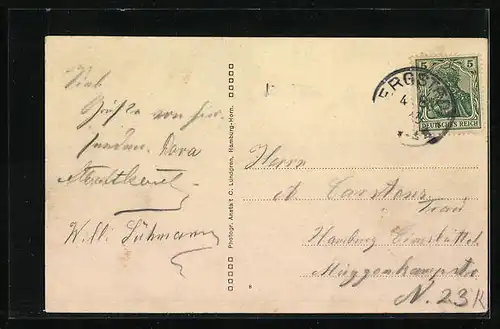 Viele
Grüße von hier
senden Dora
Willi Lühmann
Photogr. Anstalt C. Lundgren, Hamburg-Horn.
ERGST
5 5
DEUTSCHES REICH
Herrn
A. Carstens
Hamburg Eimsbüttel
Müggenkampstr
N. 23 II